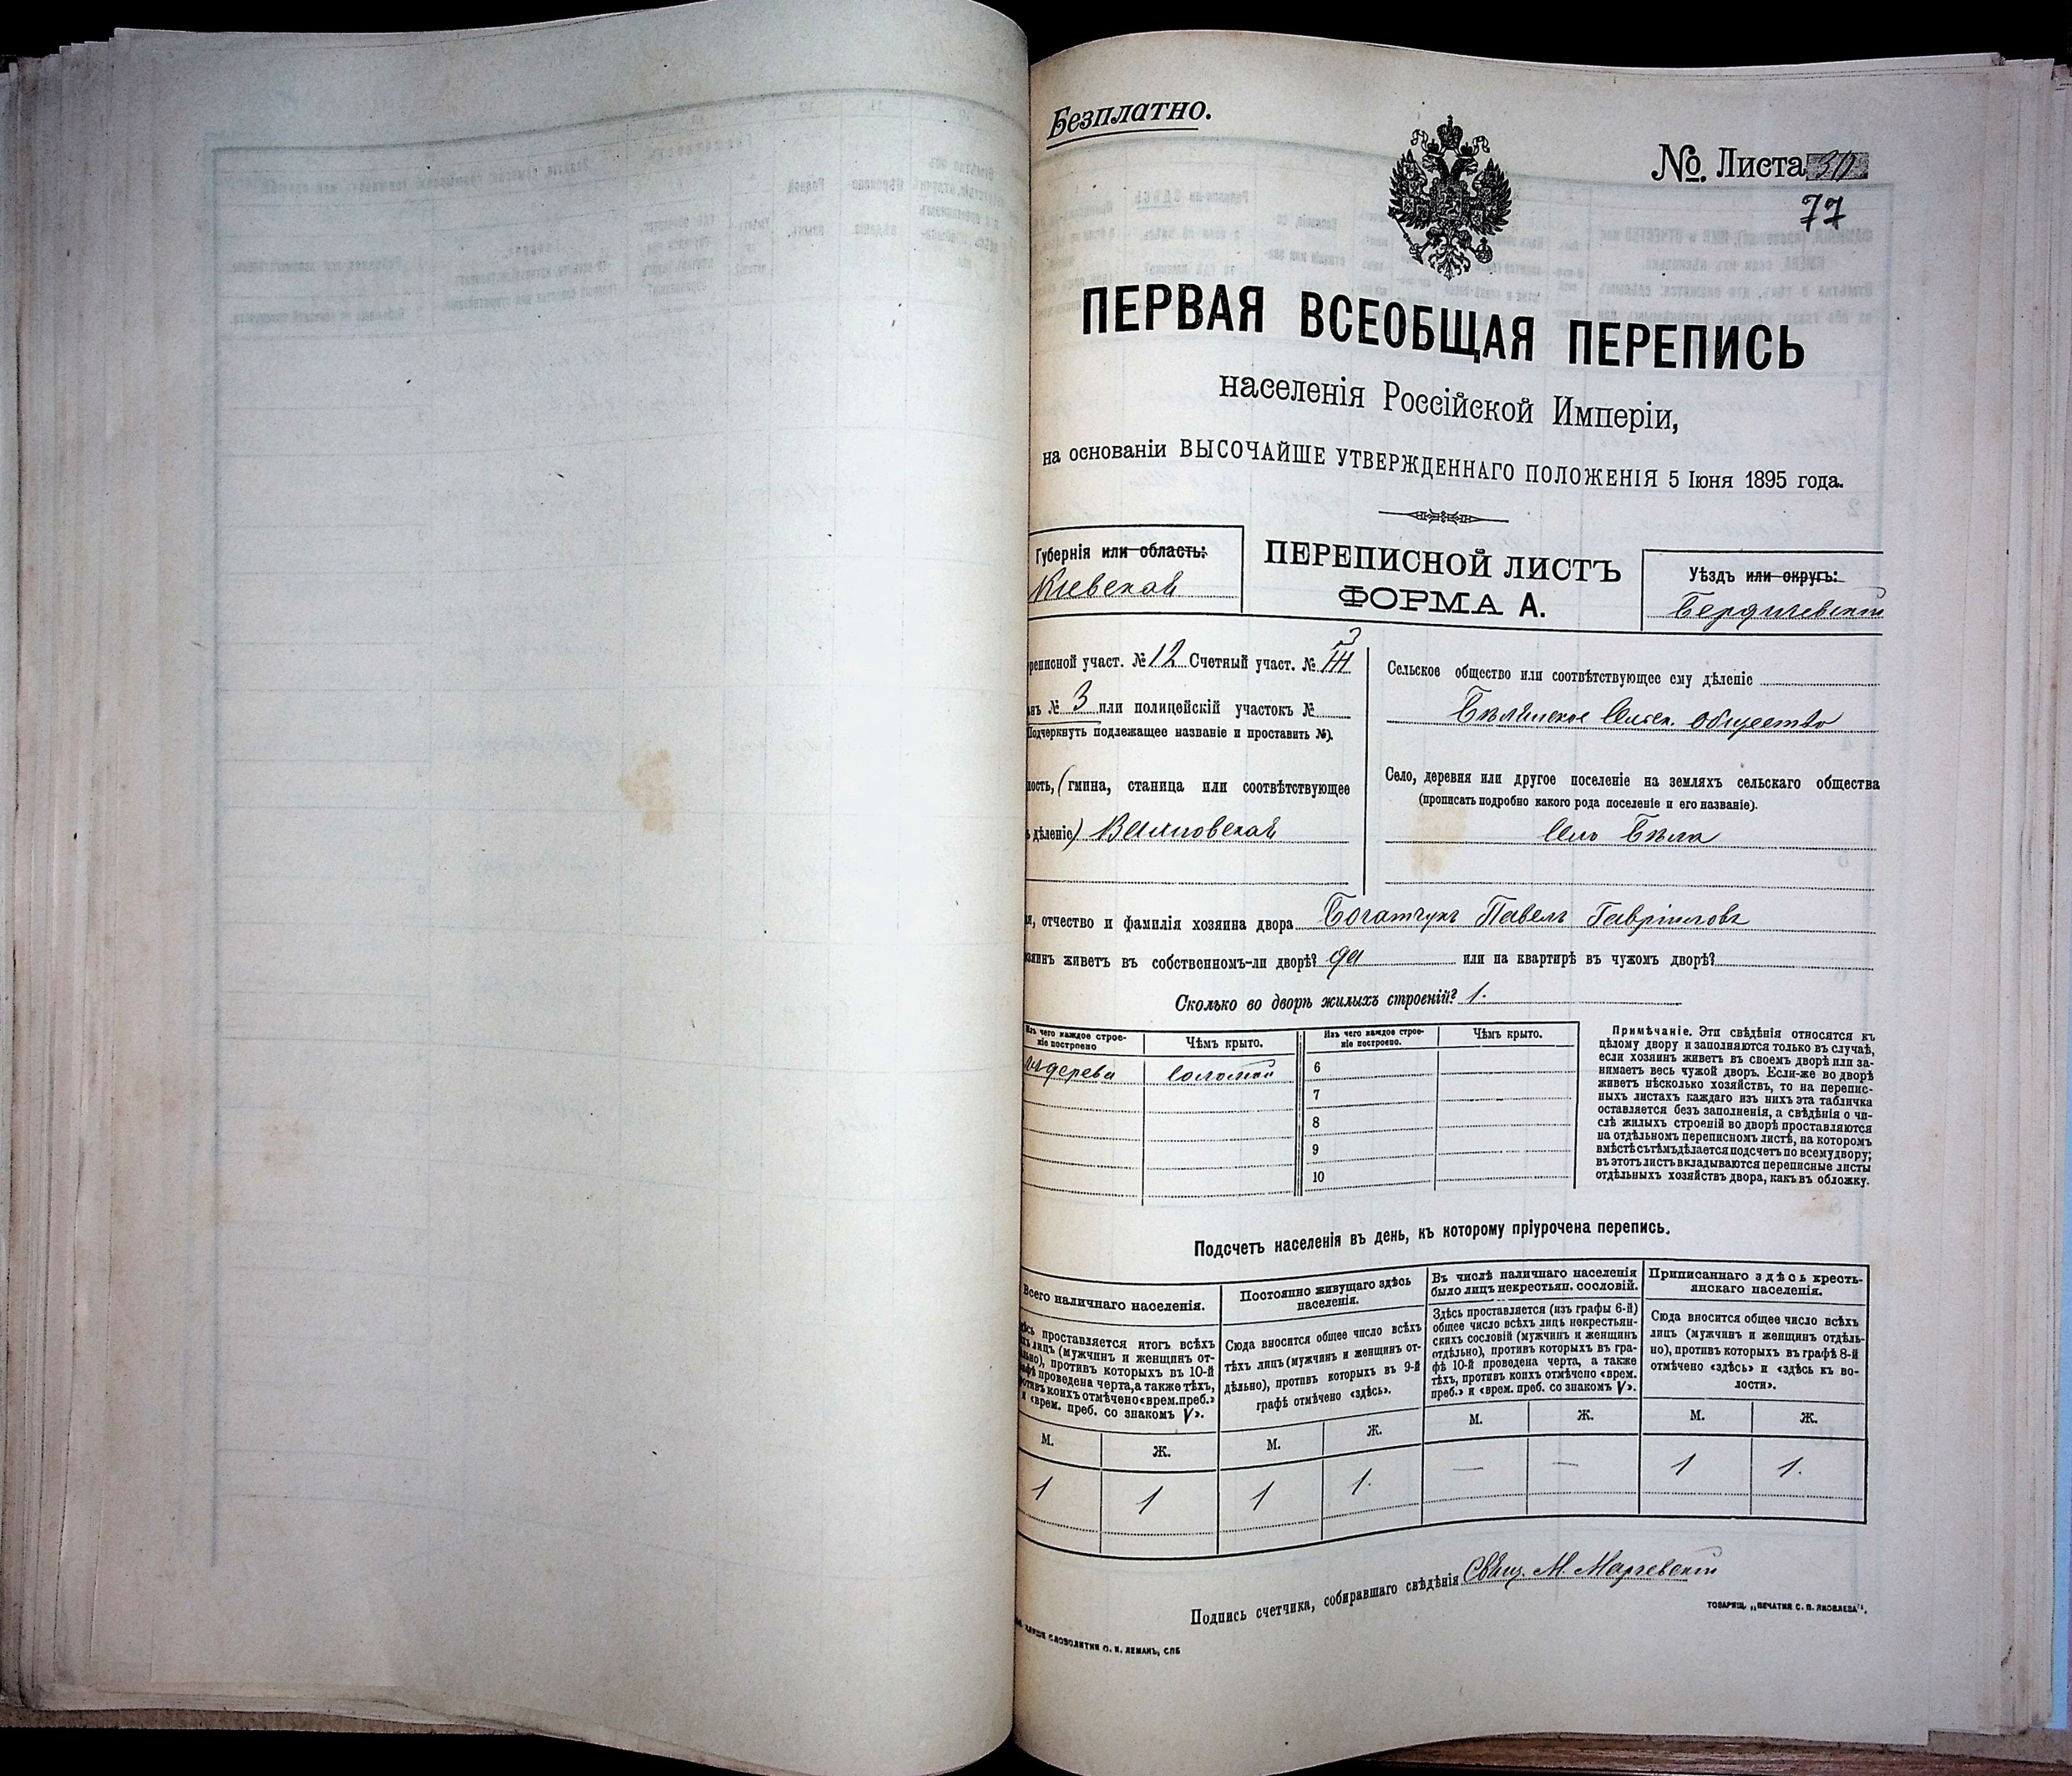 Безплатно.
№. Листа
77
ПЕРВАЯ ВСЕОБЩАЯ ПЕРЕПИСЬ
населенія Россійской Имперіи,
на основаніи ВЫСОЧАЙШЕ УТВЕРЖДЕННАГО ПОЛОЖЕНІЯ 5 Іюня 1895 года.
Губернія или область:
Кіевской
ПЕРЕПИСНОЙ ЛИСТЪ
ФОРМА А.
Уѣздъ или округъ:
Бердичевскій
реписной участ. № 12 Счетный участ. № 3
нъ № 3 или полицейскій участокъ №
Подчеркнуть подлежащее названіе и проставить №).
ность, (гмина, станица или соотвѣтствующее
ь дѣленіе)
Сельское общество или соотвѣтствующее ему дѣленіе
Бѣлянское Сельск. общество
Село, деревня или другое поселеніе на земляхъ сельскаго общества
(прописать подробно какого рода поселеніе и его названіе).
Село Бѣла
я, отчество и фамилія хозяина двора Богатчукъ Павелъ Гавріиловъ
зяинъ живетъ въ собственномъ-ли дворѣ? да или на квартирѣ въ чужомъ дворѣ?
Сколько во дворѣ жилыхъ строеній? 1.
Изъ чего каждое строе-
ніе построено
Чѣмъ крыто.
Изъ чего каждое строе-
ніе построено.
Чѣмъ крыто.
дерева соломой
6
7
8
9
10
Примѣчаніе. Эти свѣдѣнія относятся къ
цѣлому двору и заполняются только въ случаѣ,
если хозяинъ живетъ въ своемъ дворѣ или за-
нимаетъ весь чужой дворъ. Если-же во дворѣ
живетъ нѣсколько хозяйствъ, то на перепис-
ныхъ листахъ каждаго изъ нихъ эта табличка
оставляется безъ заполненія, а свѣдѣнія о чи-
слѣ жилыхъ строеній во дворѣ проставляются
на отдѣльномъ переписномъ листѣ, на которомъ
вмѣстѣ съ тѣмъ дѣлается подсчетъ по всему двору;
въ этотъ листъ вкладываются переписные листы
отдѣльныхъ хозяйствъ двора, какъ въ обложку.
Подсчетъ населенія въ день, къ которому пріурочена перепись.
Всего наличнаго населенія.
дѣсь проставляется итогъ всѣхъ
хъ лицъ (мужчинъ и женщинъ от-
льно), противъ которыхъ въ 10-й
афѣ проведена черта, а также тѣхъ,
отивъ коихъ отмѣчено «врем. преб.»
и «врем. преб. со знакомъ V».
Постоянно живущаго здѣсь
населенія.
Сюда вносится общее число всѣхъ
тѣхъ лицъ (мужчинъ и женщинъ от-
дѣльно), противъ которыхъ въ 9-й
графѣ отмѣчено «здѣсь».
Въ числѣ наличнаго населенія
было лицъ некрестьян. сословій.
Здѣсь проставляется (изъ графы 6-й)
общее число всѣхъ лицъ некрестьян-
скихъ сословій (мужчинъ и женщинъ
отдѣльно), противъ которыхъ въ гра-
фѣ 10-й проведена черта, а также
тѣхъ, противъ коихъ отмѣчено «врем.
преб.» и «врем. преб. со знакомъ V».
Приписаннаго здѣсь кресть-
янскаго населенія.
Сюда вносится общее число всѣхъ
лицъ (мужчинъ и женщинъ отдѣль-
но), противъ которыхъ въ графѣ 8-й
отмѣчено «здѣсь» и «здѣсь къ во-
лости».
М. Ж. М. Ж. М. Ж. М. Ж.
1 1 1 1. — — 1 1.
Подпись счетчика, собиравшаго свѣдѣнія Свящ. М.
ТОВАРИЩ. „ПЕЧАТНЯ С. П. ЯКОВЛЕВА“.
СЛОВОЛИТНИ О. И. ЛЕМАНЪ, СПБ